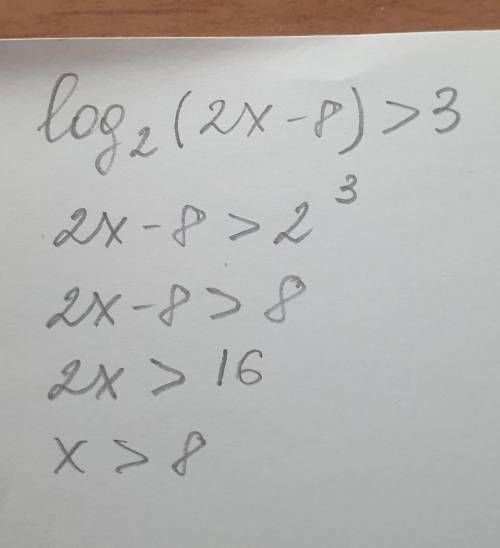 log₂(2x-8)>3
2x-8>2³
2x-8>8
2x>16
x>8